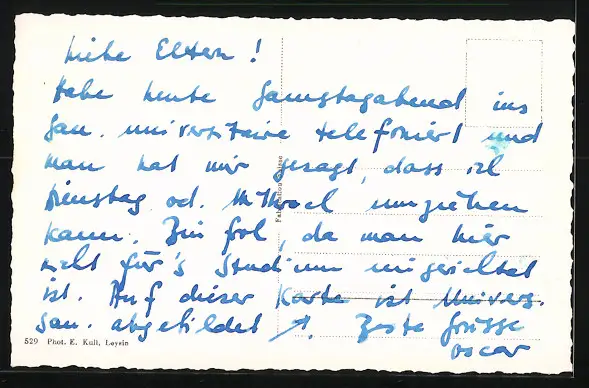 Liebe Eltern !
Habe heute Samstagabend ins
San. universitaire telefoniert und
man hat mir gesagt, dass ich
Dienstag od. Mittwoch umziehen
kann. Bin froh, da man hier
nicht für's Studium eingerichtet
ist. Auf dieser Karte ist Univers.
San. abgebildet ↗. Beste Grüsse
Oscar
529 Phot. E. Kull, Leysin